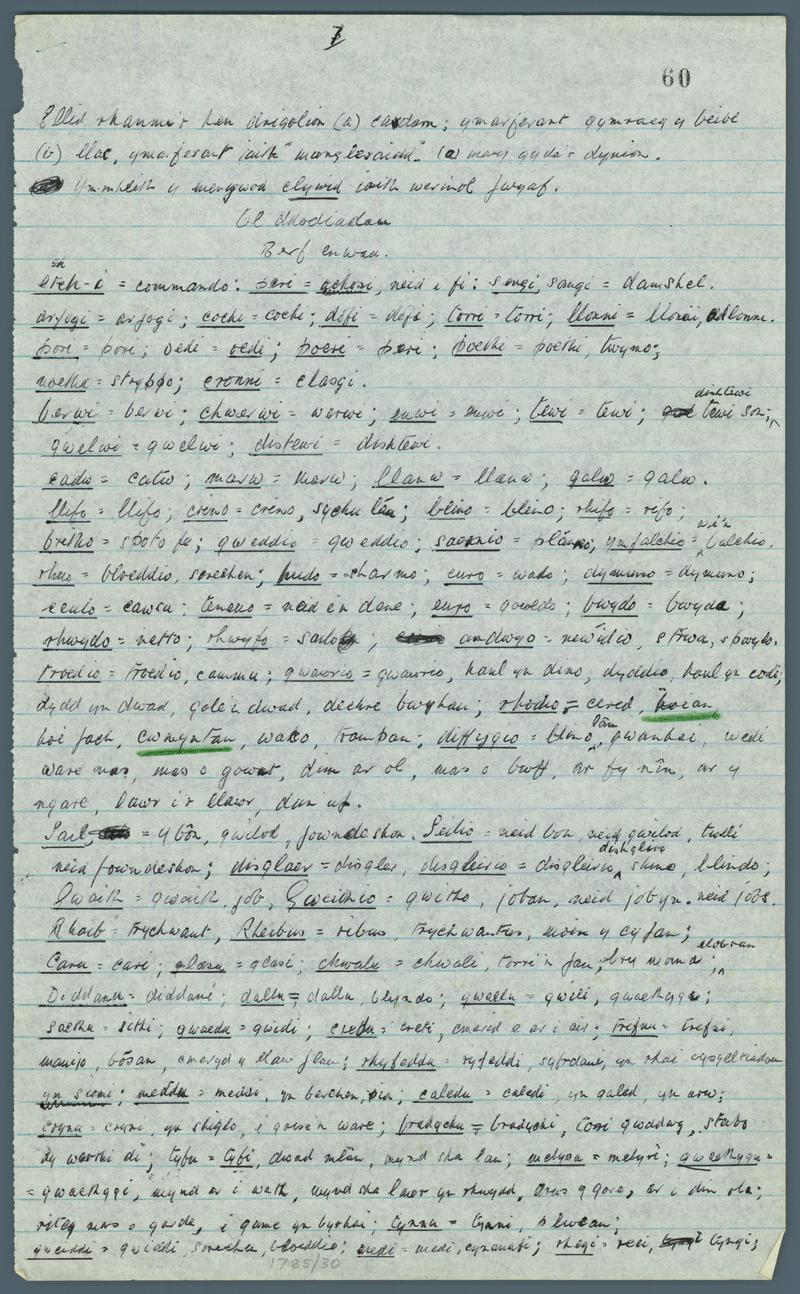 7
60
Ellid rhannu'r hen drigolion (a) ; ymarferant gymraeg y beibl
(b) llac, ymarferant iaith " ". (a) mwy gyda'r dynion.
Ymmhlith y menywod clywid iaith werinol fwyaf.
Ol ddodiadau
Berf enwau.
= commando: peri = achosi, neid i fi: sengi, sangi = damshel.
arfogi = arfogi; cochi = cochi; difi = difi; torri = torri; llonni = llonni,
pori = pori; oedi = oedi; poeri = peri; poethi = poethi, twymo;
noethi = stryppo; cronni = clasgi.
dishtewi
berwi = berwi; chwerwi = werwi; enwi = enwi; tewi = tewi; tewi son;
gwelwi = gwelwi; distewi = dishtewi.
cadw = catw; marw = marw; llanw = llanw; galw = galw.
llifo = llifo; crino = crino, sychu lân; blino = blino; rhifo = rifo;
britho = spoto fe; gweddio = gweddio; = ; ymfalchio = wi'n balchio.
rhuo = bloeddio, screchen; hudo = charmo; curo = wado; dymuno = dymuno;
ceulo = cawsu; teneuo = neid e'n dene; euro = ; bwydo = bwyda;
rhwydo = netto; rhwyfo = ; andwyo = newidio, striwa, spwylo.
troedio = troedio, cammu; gwawrio = gwawrio, haul yn dino, dyddio, haul yn codi;
dydd yn dwad, gole'n dwad, dechre bwyhau; rhodio = cered, hocan,
hoi fach, cwmyntan, waco, trampan; diffygio = blino lân, gwanhai, wedi
ware mas, mas o gownt, dim ar ol, mas o bwff, ar fy nîn, ar y
ngare, lawr i'r llawr, dun up.
Sail, = y bôn, gwilod, fowndeshon. Seilio = neid bon, neid gwilod,
neid fowndeshon; disglaer = disgler, disgleirio = disgleirio, dishgleiro shino, blindo;
Gwaith = gwaith, job, Gweithio = gwitho, joban, neid jobyn. neid jobs.
Rhaib = trychwant, Rheibus = ribus, trychwantus, moin y cyfan;
Caru = cari; glasu = glasi; chwalu = chwali, torri'n fan, ;
Diddanu = diddani; dallu = dallu, blyndo; gwaelu = gwili, gwaethygu;
saethu = sithi; gwaedu = gwidi; credu = creti, cmeryd e ar i air; trefnu = trefni,
manijo, bôsan, cmeryd y llaw flan; rhyfeddu = ryfeddi, syfrdani, yn rhai
yn siomi; meddu = meddi, yn berchen, pia; caledu = caledi, yn galed, yn arw;
crynu = cryni, yn shiglo, i goese'n ware; bradychu = bradychi, torri gwddwg, stabo
dy werthi di; tyfu = tyfi, dwad mlân, mynd sha lan; melysu = melysi; gwaethygu =
= gwaethygi, mynd ar i wath, mynd sha lawr yn rhwydd, drws y gore, ar i din ola;
riteg mas o garde, i game yn byrhai; tynnu = tynni, plwcan;
gweiddi = gwiddi, screchen, bloeddio; medi = medi, cynaeafi; rhegi = reci, tyngi;
1785/30